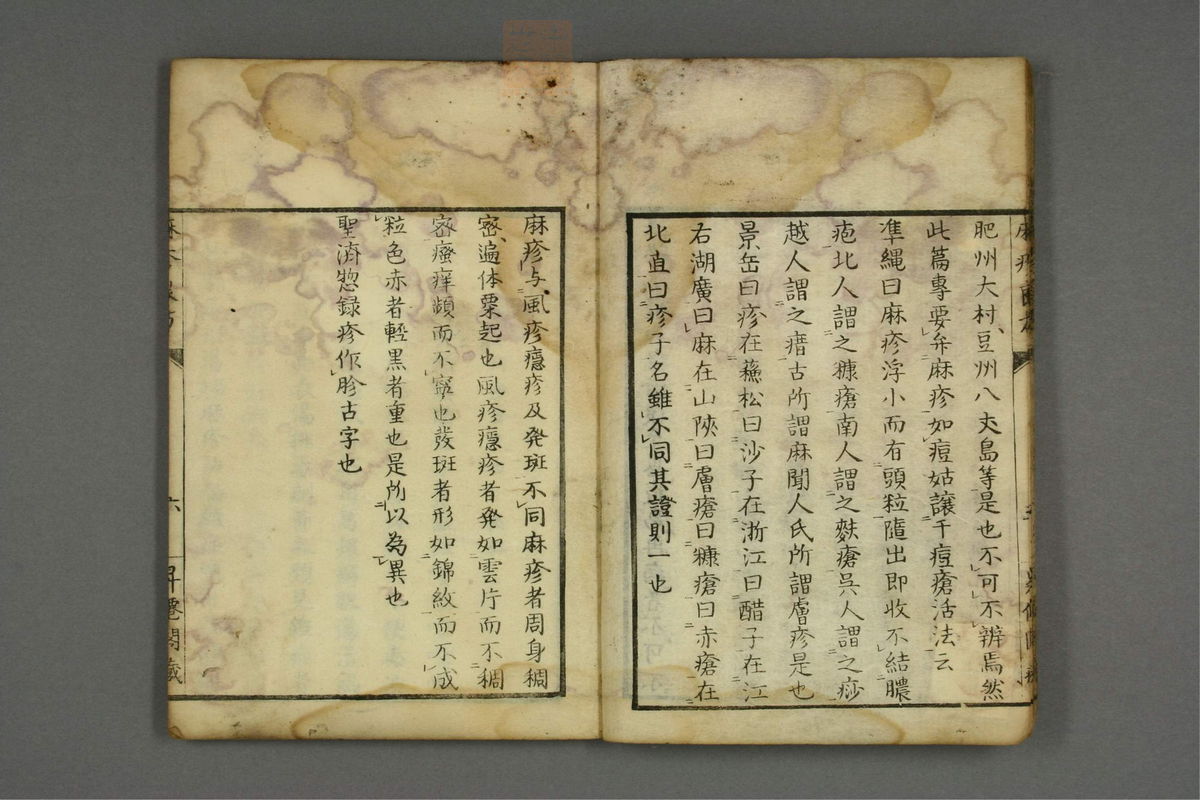 肥州大村豆州八丈島等是也不可不辨焉然
此篇專要弁麻疹如痘姑讓于痘瘡活法云
準縄曰麻疹浮小而有頭粒隨出即收不結膿
疱北人謂之糠瘡南人謂之麩瘡呉人謂之痧
越人謂之㾪古所謂麻聞人氏所謂膚疹是也
景岳曰疹在蘓松曰沙子在浙江曰醋子在江
右湖廣曰麻在山陝曰膚瘡曰糠瘡曰赤瘡在
北直曰疹子名雖不同其證則一也
麻疹与風疹癮疹及発斑不同麻疹者周身稠
密遍体粟起也風疹癮疹者発如雲片而不稠
密瘙痒頻而不寧也發斑者形如錦紋而不成
粒色赤者輕黒者重也是所以為異也
聖済惣録疹作胗古字也
六